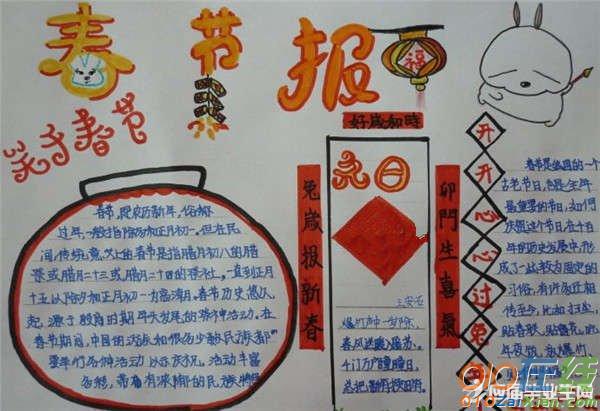 春节报
福
关于春节
春节,是农历新年,俗称
过年,一般指除夕和正月初一。但在民
间,传统意义上的春节是指腊月初八的腊
祭或腊月二十三或腊月二十四的祭灶,一直到正月
十五,以除夕和正月初一为高潮。春节历史悠久,
起源于殷商时期年头岁尾的祭神活动。在
春节期间,中国的汉族和很多少数民族都
要举行各种活动以示庆祝。活动丰富
多彩,带有浓郁的民族特
好歲和時
兔歲报新春
卯門生喜氣
元日
王安石
爆竹声中一岁除,
春风送暖入屠苏。
千门万户曈曈日,
总把新桃换旧符。
开开心心过兔年
春节是我国的一个
古老节日,也是全年
最重要的节日,如何
庆祝这个节日,在千
年的历史发展中,形
成了一些较为固定的
习俗,有许多还相
传至今,比如扫尘,
贴春联,贴窗花,吃
年夜饭,放爆竹,
910在线
910zaixian.com
应届毕业生网